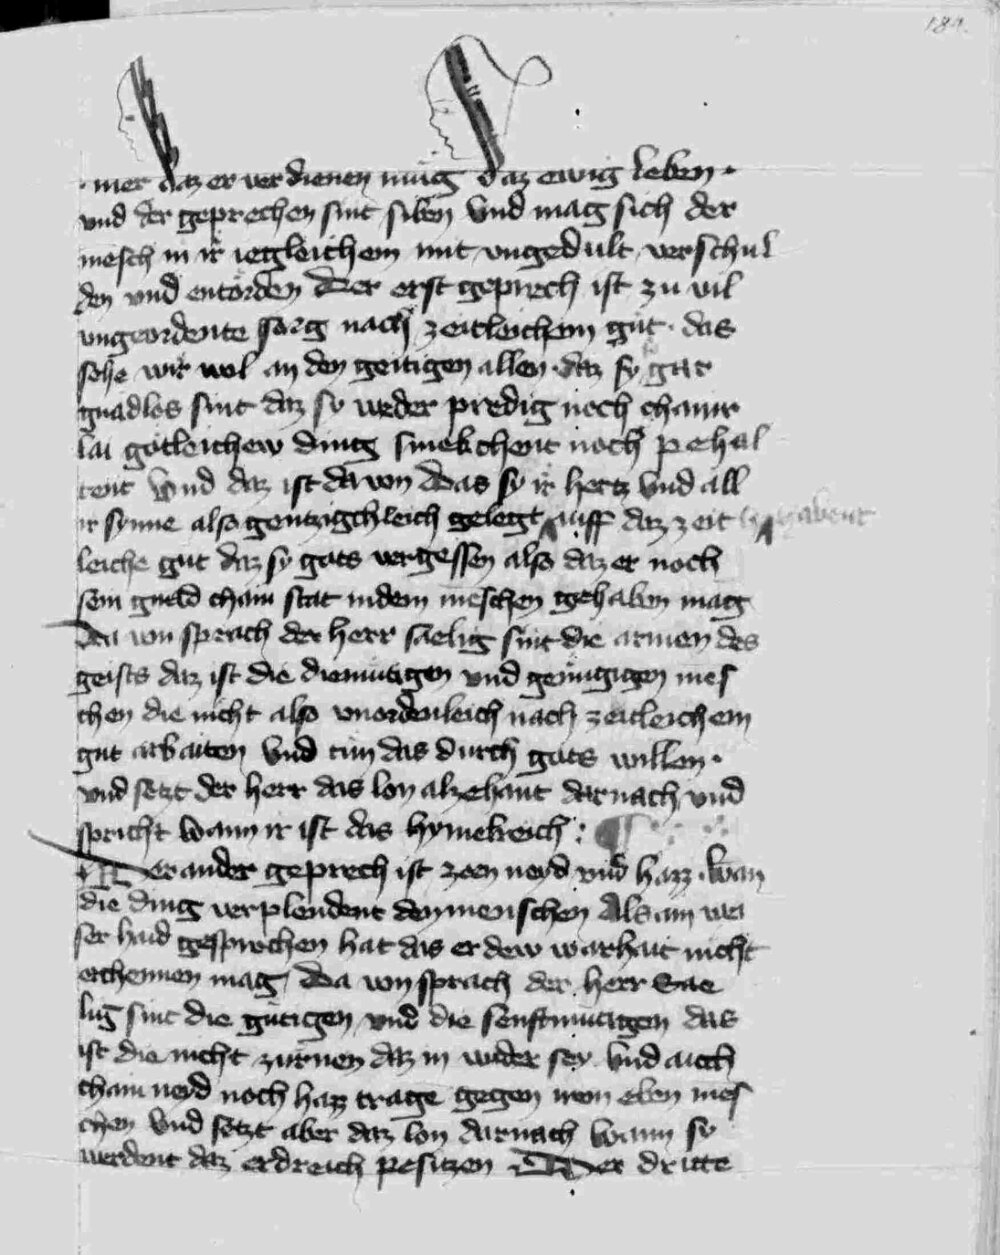 184.
mer daz er verdienen müg daz ewig leben ·
und der geprechen sint siben Und mag sich der
mesch in ir iegleichem mit ungedult verschul
den und entörden Der erst geprech ist zu vil
ungeordente sorg nach zeitleichem gut · das
sehe wir wol an den geitigen allen daz sy gar
gnadlos sint daz sy weder predig noch chainr
lai götleichew ding smekchent noch pehal
tent Und daz ist davon Das sy ir hertz Und all
ir synne also gentzigchleich gelegt auff daz zeit habent
leiche gut daz sy gots vergessen also daz er noch
sein gnad chain stat in dem meschen gehaben mag
Da von sprach der herr saelig sint die armen des
geists daz ist die diemütigen und genügigen mes
chen die nicht also unordenleich nach zeitleichem
gut arbaiten Und tun das durch gots willen ·
und setzt der herr das lon alzehant darnach und
spricht Wann ir ist das hymelreich : ¶
Der ander geprech ist zorn neyd und hazz · Wan
die ding verplendent den menschen Als ain wei
ser haid gesprochen hat das er dew warhait nicht
erchennen mag Da von sprach der herr Sae
lig sint die gütigen und die senftmütigen das
ist die nicht zürnen daz in wider sey Und auch
chain neyd noch hazz trage gegen irem eben mes
chen Und setzt aber daz lon darnach Wann sy
werdent daz erdreich pesitzen Der dritte